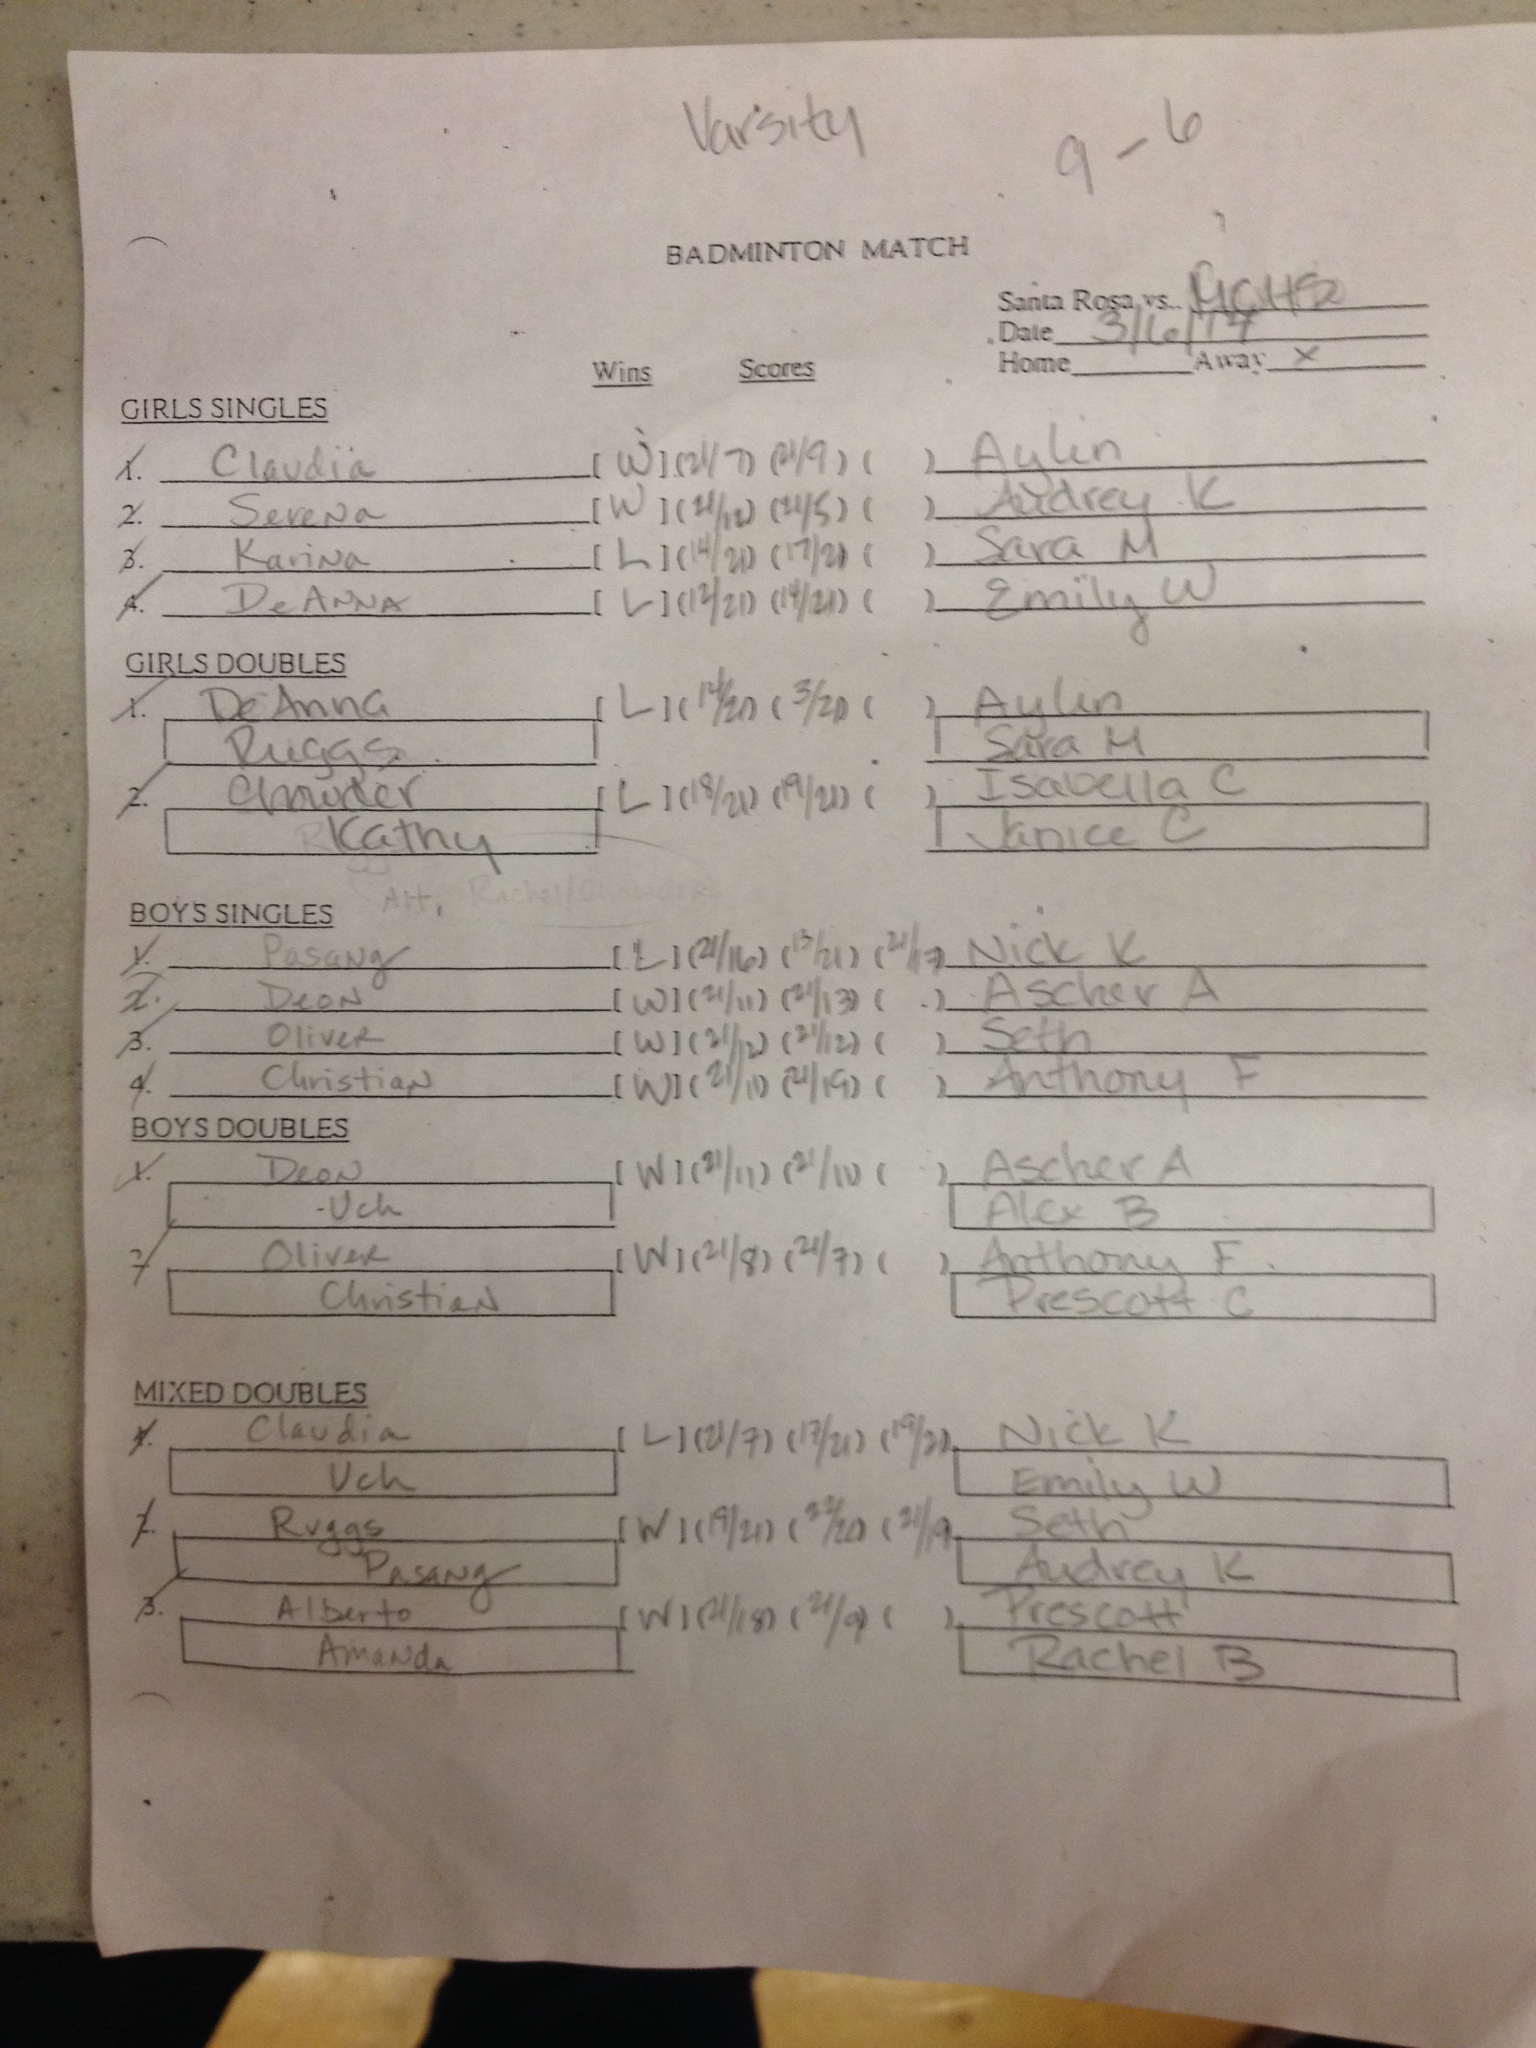 Varsity
9-6
BADMINTON MATCH
Santa Rosa vs.
Date 3/6/14
Home Away X
Wins Scores
GIRLS SINGLES
1. Claudia [W] (21/7) (21/9) ( ) Aylin
2. Serena [W] (21/12) (21/5) ( ) Audrey K
3. Karina [L] (14/21) (17/21) ( ) Sara M
4. DeANNA [L] (12/21) (14/21) ( ) Emily W
GIRLS DOUBLES
1. DeAnna [L] (12/21) (3/21) ( ) Aylin
Ruggs Sara M
2. Chowder [L] (18/21) (19/21) ( ) Isabella C
Kathy Janice C
Alt. Rachel/Chowder
BOYS SINGLES
1. Pasang [L] (21/16) (13/21) (21/17) Nick K
2. Deon [W] (21/11) (21/13) ( ) Ascher A
3. Oliver [W] (21/12) (21/12) ( ) Seth
4. Christian [W] (21/11) (21/19) ( ) Anthony F
BOYS DOUBLES
1. Deon [W] (21/11) (21/10) ( ) Ascher A
Uch Alex B
2 Oliver [W] (21/8) (21/7) ( ) Anthony F.
Christian Prescott C
MIXED DOUBLES
1. Claudia [L] (21/7) (17/21) (19/21) Nick K
Uch Emily W
2. Ruggs [W] (19/21) (22/20) (21/19 Seth
Pasang Audrey K
3. Alberto [W] (21/18) (21/9) ( ) Prescott
Amanda Rachel B